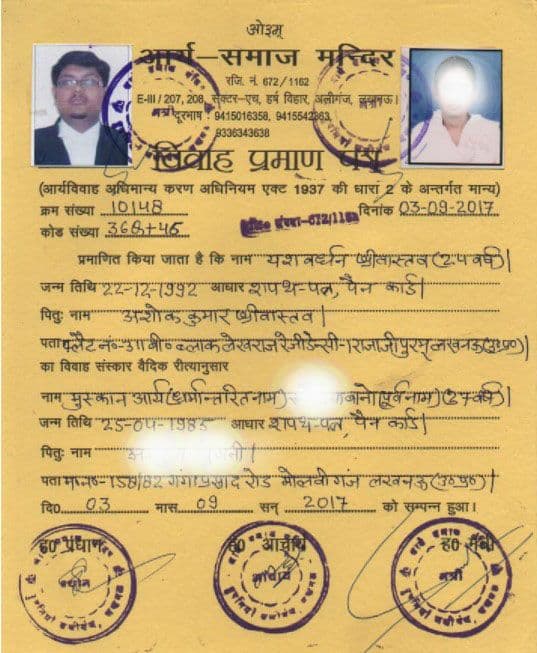 ओ३म्
आर्य-समाज मन्दिर
रजि. नं. 672/1162
E-III/207, 208, सेक्टर-एच, हर्ष विहार, अलीगंज, लखनऊ।
दूरभाष : 9415016358, 9415542363,
9336343638
विवाह प्रमाण पत्र
(आर्यविवाह अधिमान्य करण अधिनियम एक्ट 1937 की धारा 2 के अन्तर्गत मान्य)
क्रम संख्या 10148 दिनांक 03-09-2017
कोड संख्या 368+46 रजि० संख्या-672/1162
प्रमाणित किया जाता है कि नाम यशवर्धन श्रीवास्तव (24 वर्ष)।
जन्म तिथि 22-12-1992 आधार शपथ-पत्र, पैन कार्ड।
पितुः नाम अशोक कुमार श्रीवास्तव।
पता फ्लैट नं०-311 बी० ब्लाक लेखराज रेजीडेन्सी-1 राजाजीपुरम् लखनऊ (उ०प्र०)
का विवाह संस्कार वैदिक रीत्यानुसार
नाम मुस्कान आर्य (धर्मान्तरित नाम) बानो (पूर्व नाम) (27 वर्ष)
जन्म तिथि 25-04-1985 आधार शपथ-पत्र, पैन कार्ड।
पितुः नाम
पता मा०नं०-158/82 गंगाप्रसाद रोड मौलवी गंज लखनऊ (उ०प्र०)
दि० 03 मास 09 सन् 2017 को सम्पन्न हुआ।
ह० प्रधान ह० आचार्य ह० मंत्री
प्रधान आचार्य मंत्री